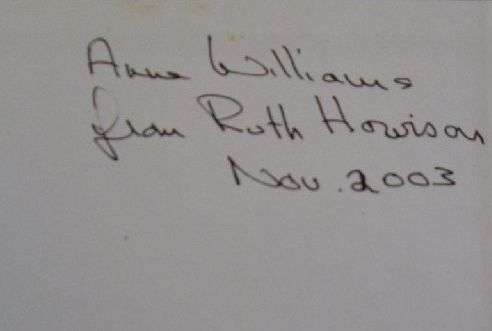 Anne Williams
from Ruth Howison
Nov. 2003